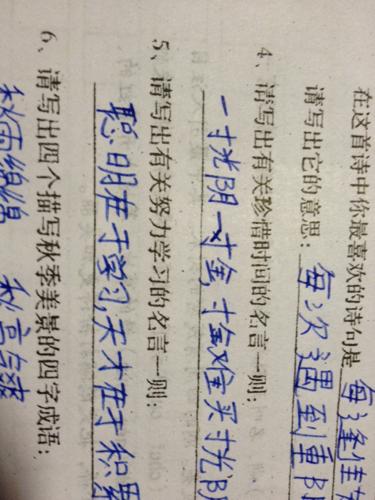 在这首诗中你最喜欢的诗句是 每逢佳
请写出它的意思: 每次遇到重阳
4、请写出有关珍惜时间的名言一则:
一寸光阴一寸金,寸金难买寸光阴
5、请写出有关努力学习的名言一则:
聪明在于学习,天才在于积累
6、请写出四个描写秋季美景的四字成语:
秋雨绵绵 秋高气爽